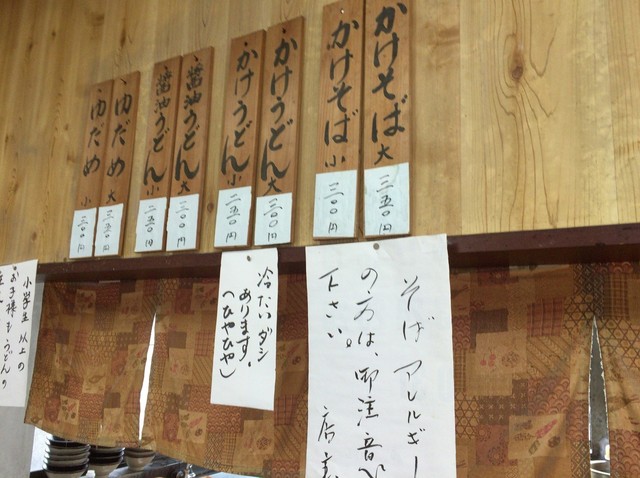 かけそば 大 三五〇円
かけそば 小 三〇〇円
かけうどん 大 三〇〇円
かけうどん 小 二五〇円
醤油うどん 大 三〇〇円
醤油うどん 小 二五〇円
ゆだめ 大 三五〇円
ゆだめ 小 三〇〇円
そば アレルギー
の方は、御注意
下さい。
店主
冷たいダシ
あります。
(ひやひや)
小学生以上の
お子様もうどんの